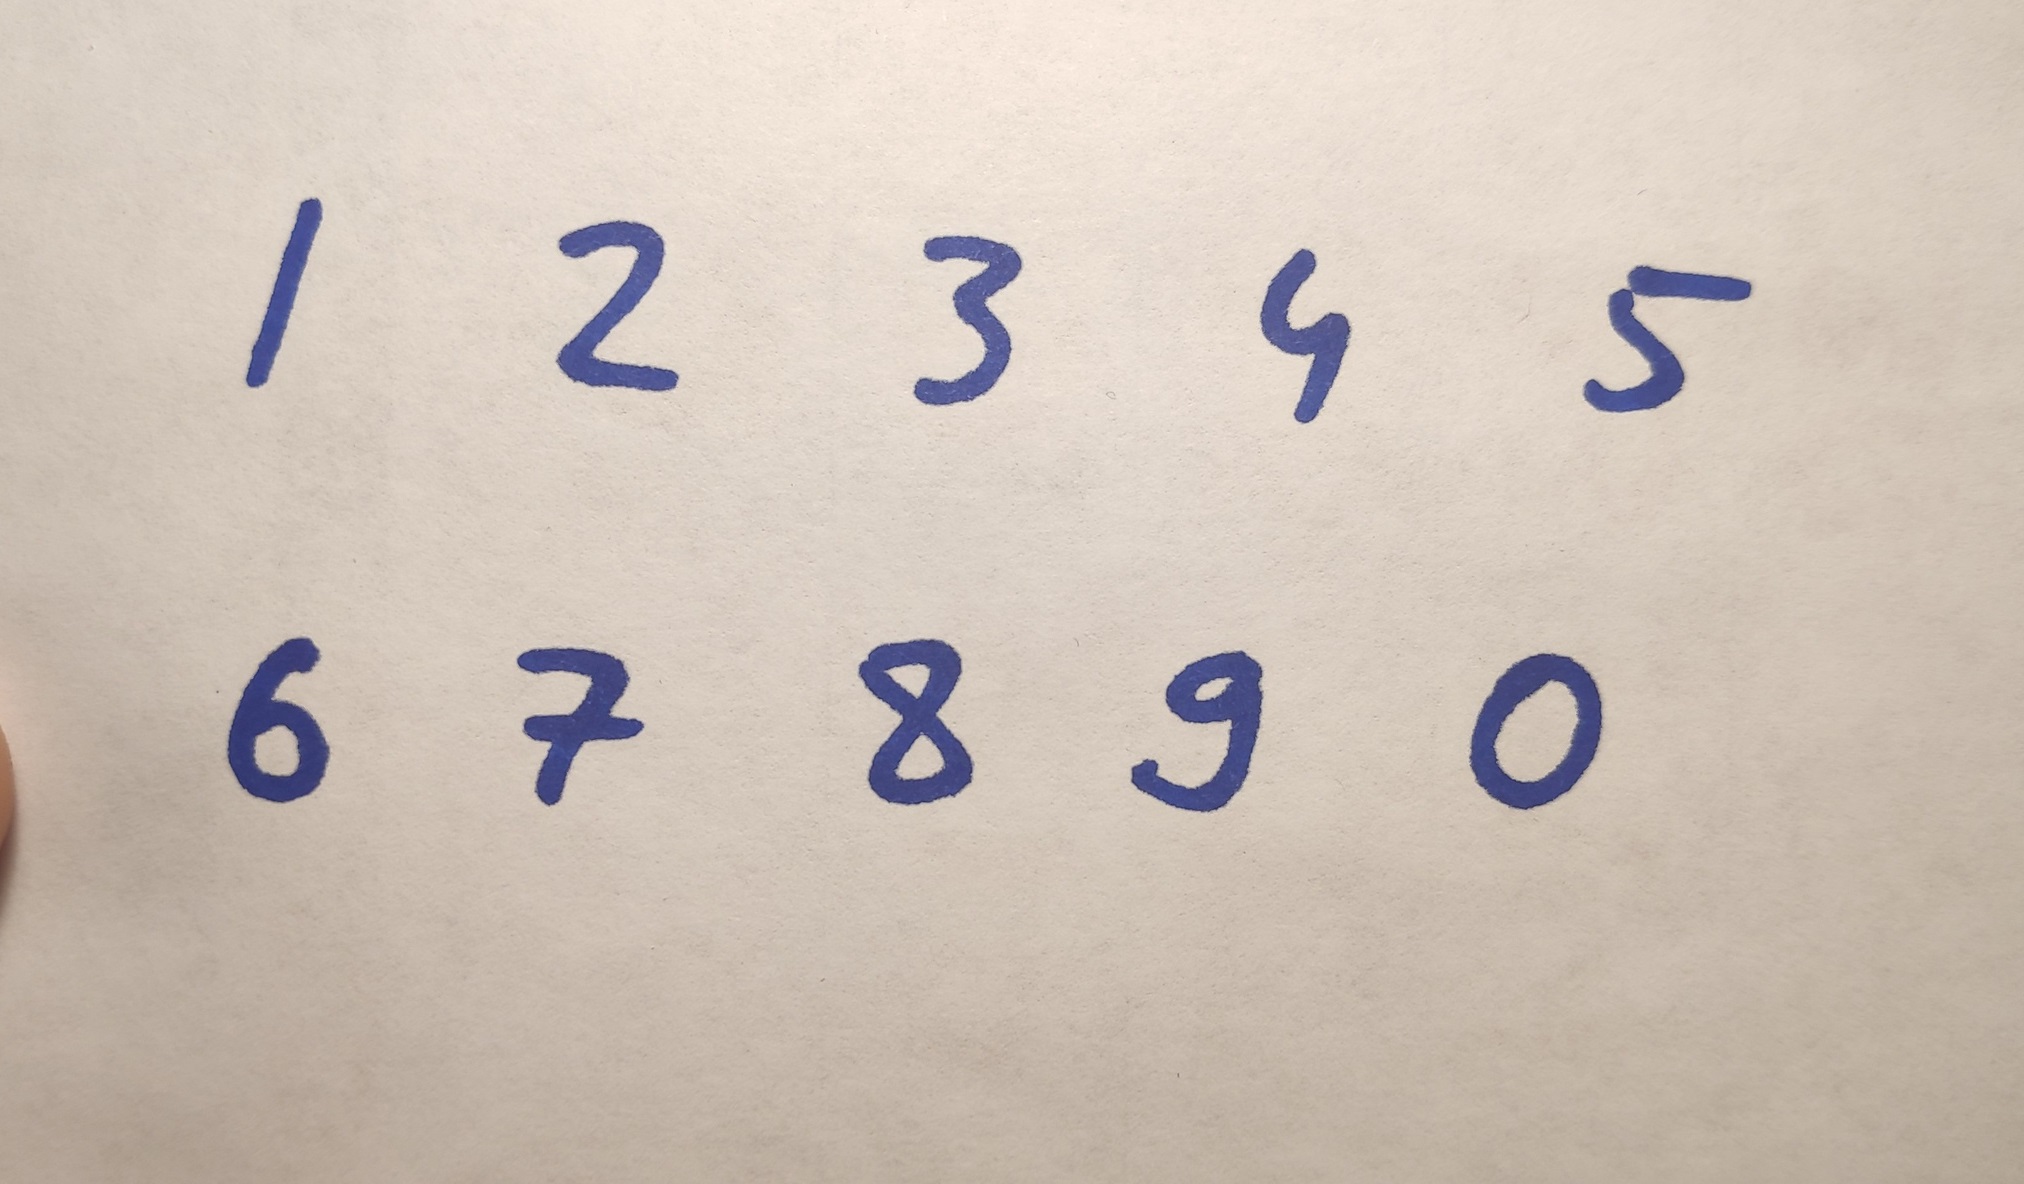 1 2 3 4 5
6 7 8 9 0